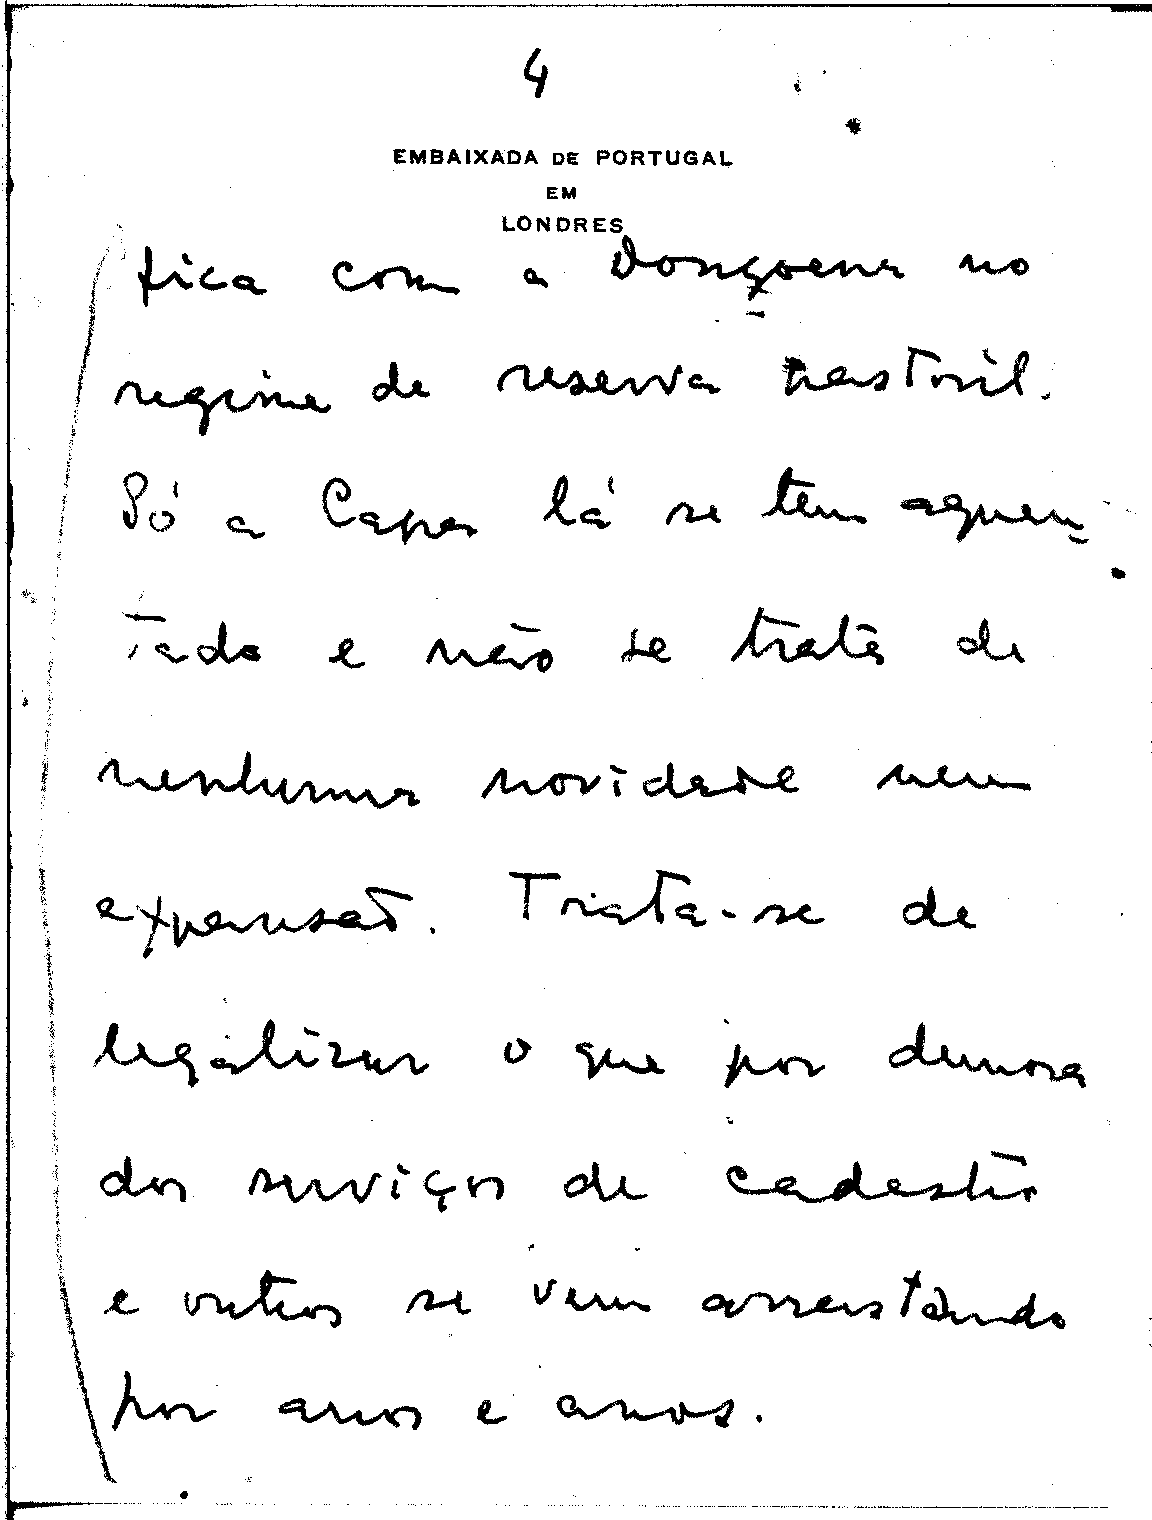 4
EMBAIXADA DE PORTUGAL
EM
LONDRES
fica com a Dongoena no
regime de reserva pastoril.
Só a Capa lá se tem aguen-
tado e não se trata de
nenhuma novidade nem
expansão. Trata-se de
legalizar o que por demora
dos serviços de cadastro
e outros se vem arrastando
por anos e anos.